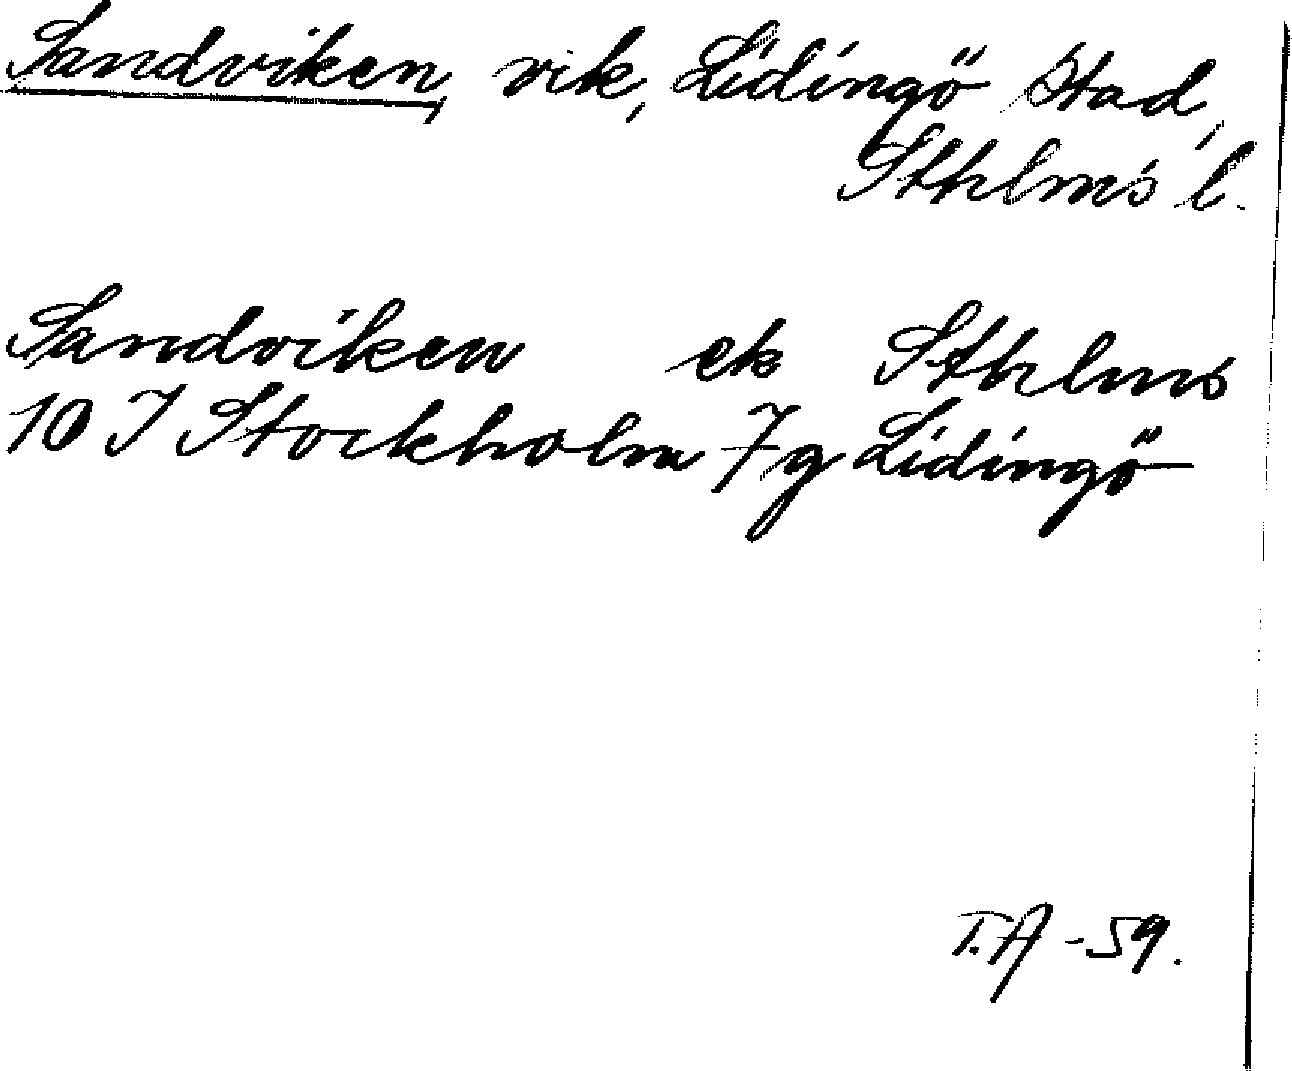 Sandviken, vik, Lidingö Stad,
Sthlms l.
Sandviken ek Sthlms
10 I Stockholm 7g Lidingö
T.A -59.